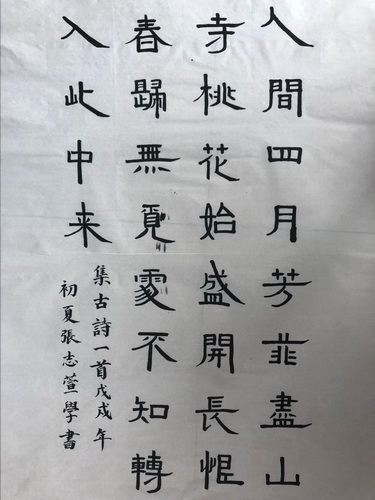 人間四月芳菲盡山
寺桃花始盛開長恨
春歸無覓處不知轉
入此中来
集古詩一首戊戌年
初夏張志萱學書